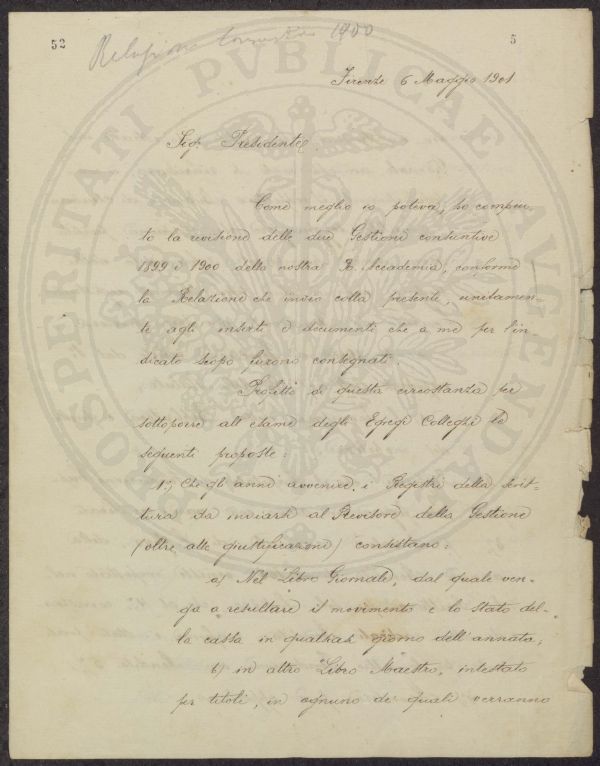 52
5
Relazione 1900
Firenze 6 Maggio 1901
Sig. Presidente,
Come meglio io poteva, ho compiu-
to la revisione delle due Gestioni consuntive
1899 e 1900 della nostra R. Accademia, conforme
la Relazione che invio colla presente, unitamen-
te agli inserti e documenti che a me per l'in-
dicato scopo furono consegnati.
Profitto di questa circostanza per
sottoporre all'esame degli Egregi Colleghi le
seguenti proposte:
1°) Che gli anni avvenire, i Registri della Scrit-
tura da inviarsi al Revisore della Gestione
(oltre alle giustificazioni) consistano:
a) Nel Libro Giornale, dal quale ven-
ga a resultare il movimento e lo stato del-
la cassa in qualsiasi giorno dell'annata;
b) in altro Libro Maestro, intestato
per titoli, in ognuno de' quali verranno
PROSPERITATI PVBLICAE AVGENDAE